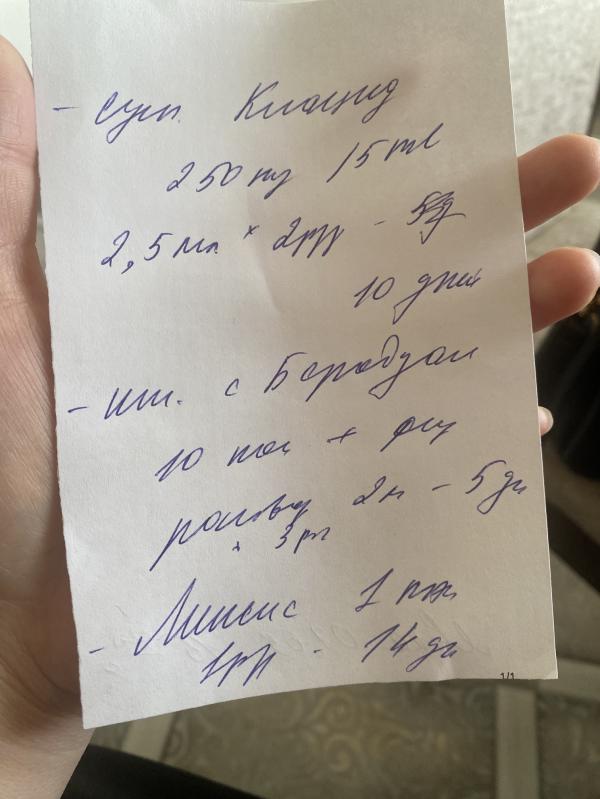 - сусп. Клацид
250 mg 15 ml
2,5 мл × 2 р/д -
10 дней
- инг. с Беродуал
10 кап + физ
раствор 2 м - 5 дн
× 3 р/д
- 1 пак
1 р/д - 14 дн
1/1